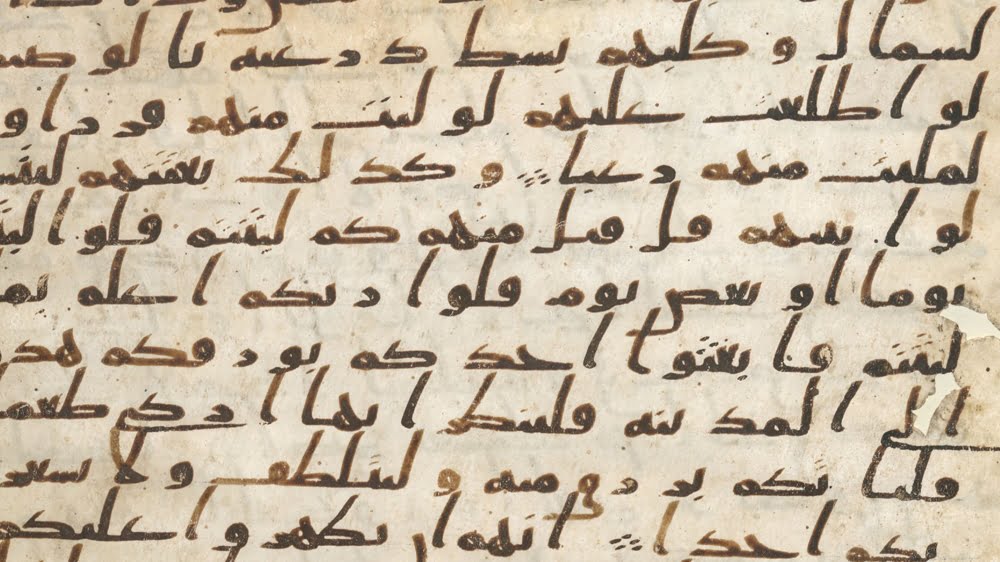 لشمال و كلبهم بسط ذرعيه بالوصيد
لو اطلعت عليهم لوليت منهم فررا و
لملیت منهم رعبا و كذلك بعثنهم ليتسا
لوا بينهم قل قيل منهم كم لبثتم قلوا لبثنا
يوما او بعض يوم قلوا ربكم اعلم بما
لبثتم فابعثوا احدكم بورقكم هذه
الى المدينه فلينظر ايها ازكى طعما
فلياتكم برزق منه و ليتلطف ولا يشعرن
بكم احدا انهم ان يظهروا عليكم